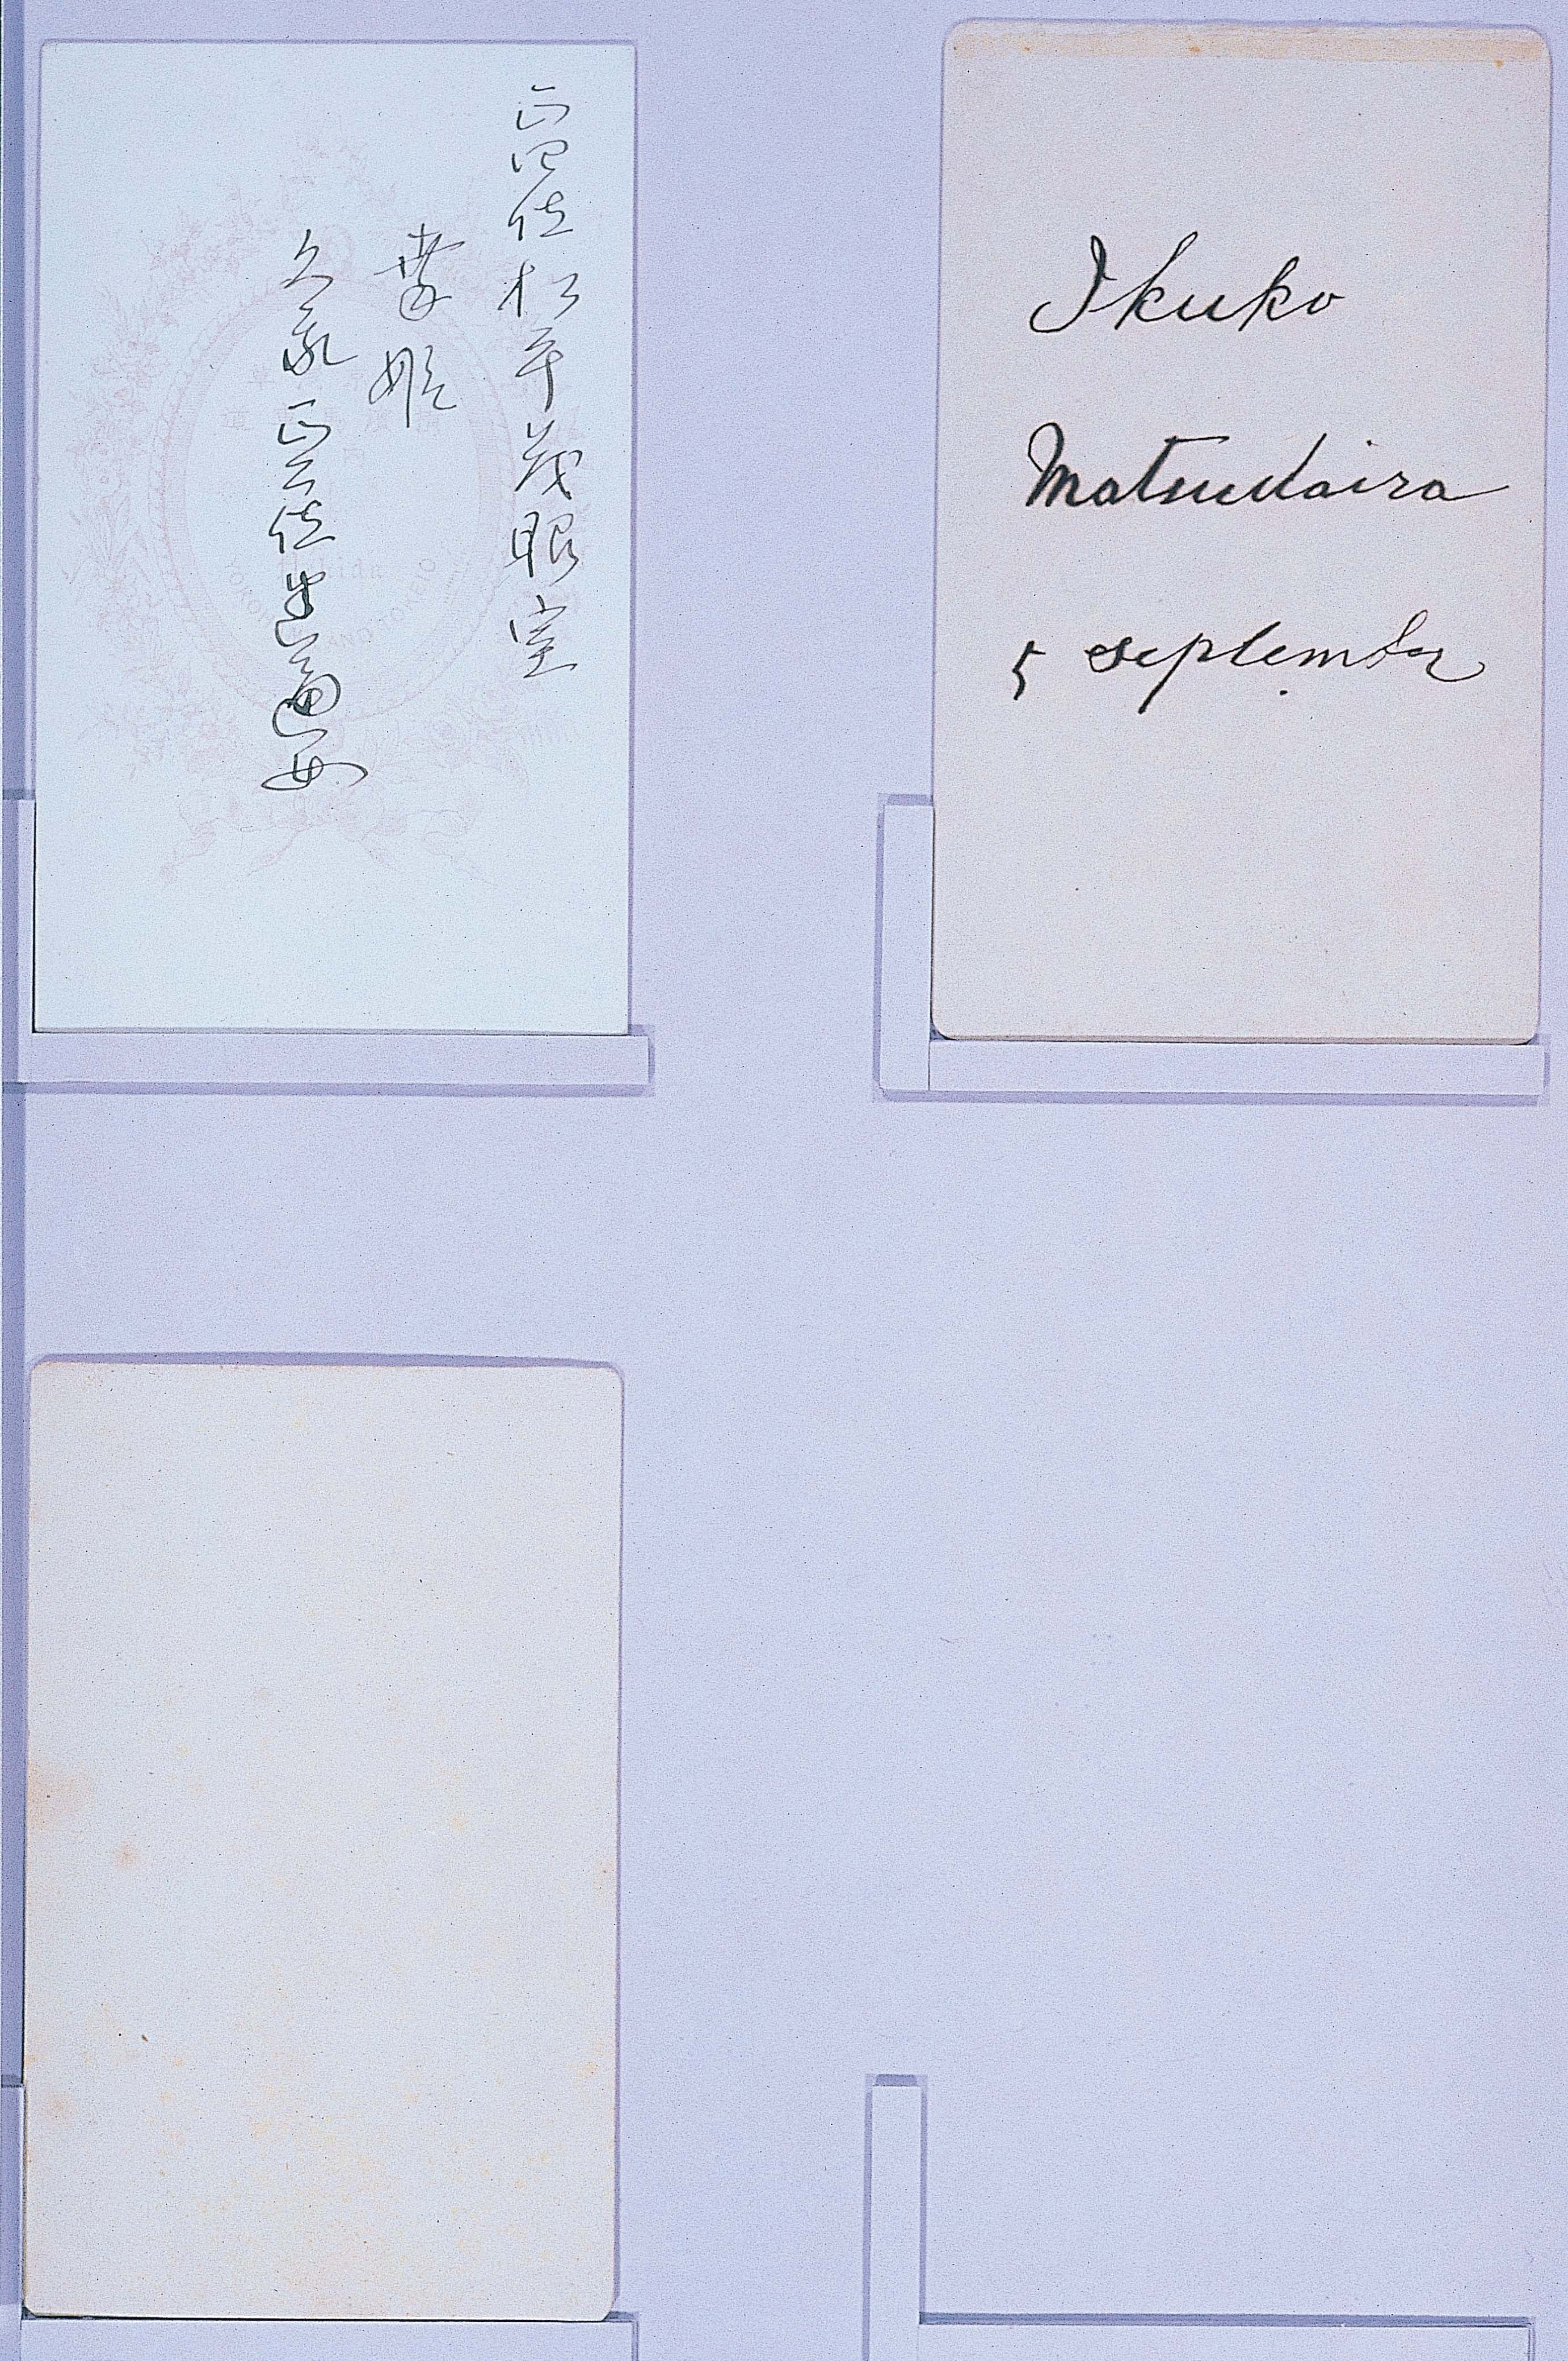 正四位松平茂昭室
姫
久我正二位建通女
YOKOHAMA AND TOKEIO
Ikuko
Matsudaira
5 september